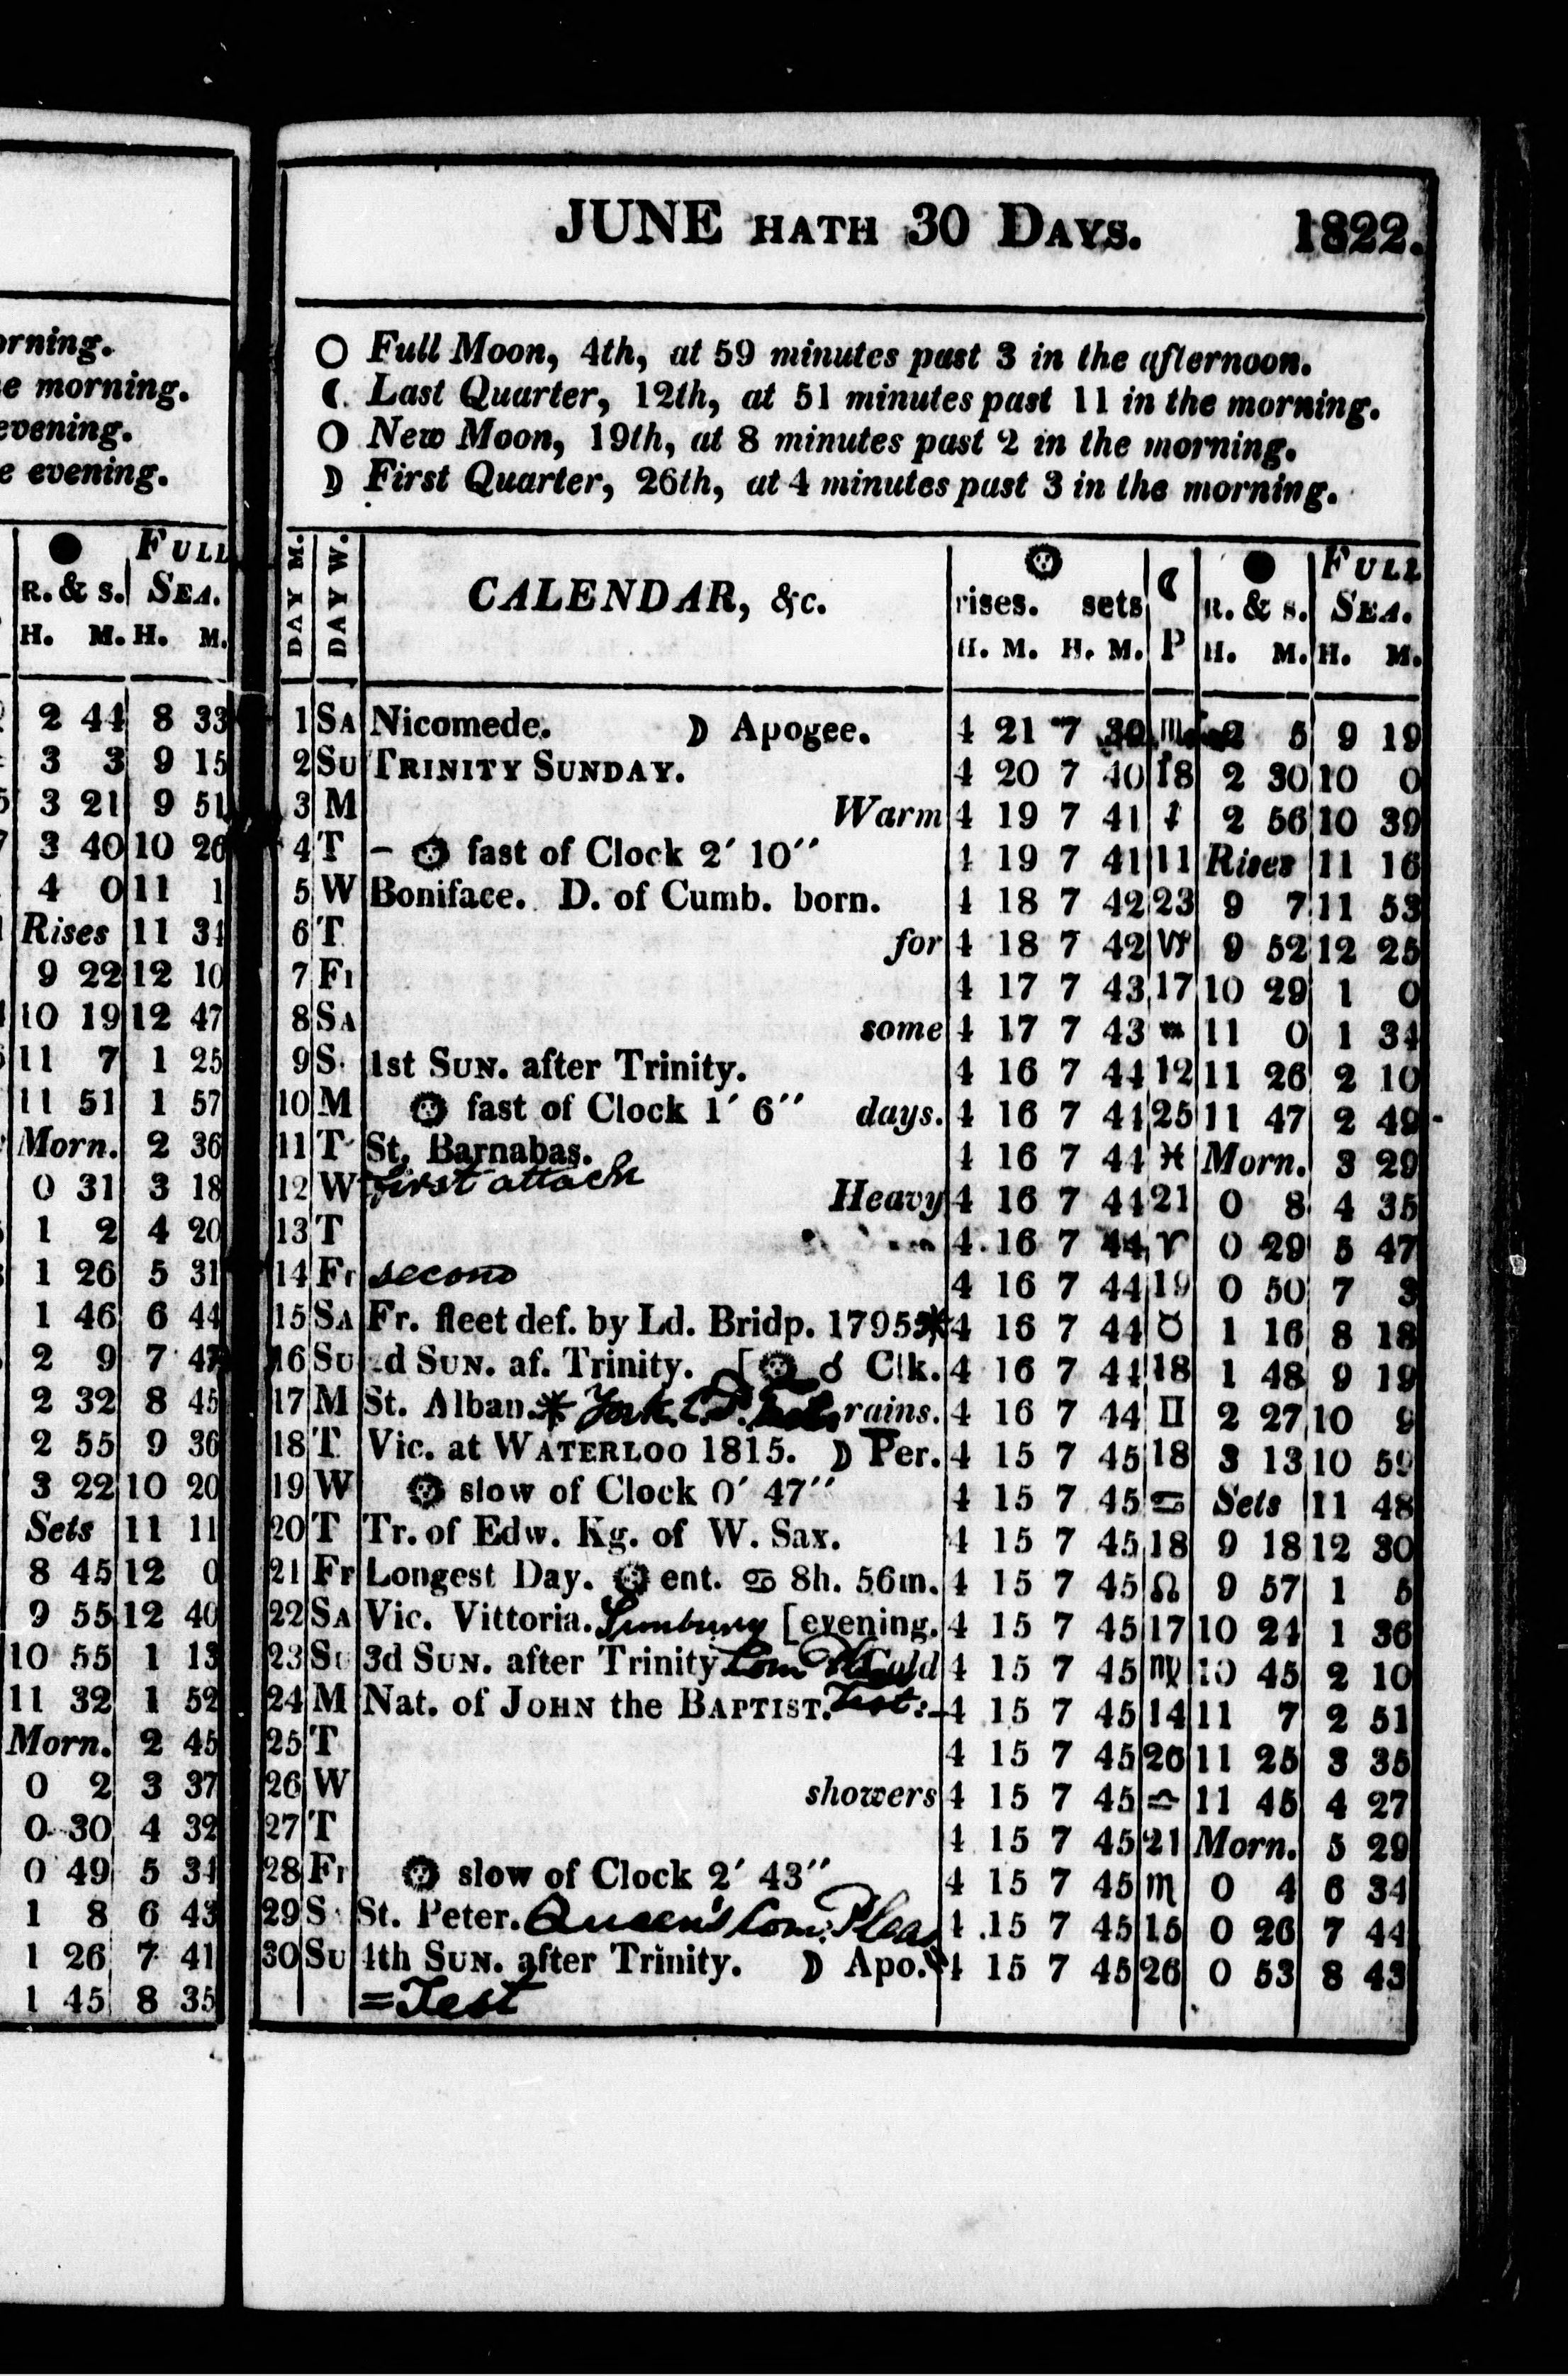 orning.
e morning.
evening.
e evening.
FULL
R. & S. SEA.
H. M. H. M.
2 44 8 33
3 3 9 15
3 21 9 51
3 40 10 26
4 0 11 1
Rises 11 34
9 22 12 10
10 19 12 47
11 7 1 25
11 51 1 57
Morn. 2 36
0 31 3 18
1 2 4 20
1 26 5 31
1 46 6 44
2 9 7 47
2 32 8 45
2 55 9 36
3 22 10 20
Sets 11 11
8 45 12 0
9 55 12 40
10 55 1 13
11 32 1 52
Morn. 2 45
0 2 3 37
0 30 4 32
0 49 5 34
1 8 6 43
1 26 7 41
1 45 8 35
JUNE HATH 30 DAYS. 1822.
○ Full Moon, 4th, at 59 minutes past 3 in the afternoon.
☾ Last Quarter, 12th, at 51 minutes past 11 in the morning.
○ New Moon, 19th, at 8 minutes past 2 in the morning.
☽ First Quarter, 26th, at 4 minutes past 3 in the morning.
DAY M. DAY W. CALENDAR, &c. rises. sets ☾ R. & S. FULL SEA.
H. M. H. M. P H. M. H. M.
1 SA Nicomede. ☽ Apogee. 4 21 7 39 ♏ 2 5 9 19
2 SU TRINITY SUNDAY. 4 20 7 40 18 2 30 10 0
3 M Warm 4 19 7 41 ♐ 2 56 10 39
4 T – ☉ fast of Clock 2′ 10″ 4 19 7 41 11 Rises 11 16
5 W Boniface. D. of Cumb. born. 4 18 7 42 23 9 7 11 53
6 T for 4 18 7 42 ♑ 9 52 12 25
7 FI 4 17 7 43 17 10 29 1 0
8 SA some 4 17 7 43 ♒ 11 0 1 34
9 S 1st SUN. after Trinity. 4 16 7 44 12 11 26 2 10
10 M ☉ fast of Clock 1′ 6″ days. 4 16 7 44 25 11 47 2 49
11 T St. Barnabas. 4 16 7 44 ♓ Morn. 3 29
12 W first attack Heavy 4 16 7 44 21 0 8 4 35
13 T 4 16 7 44 ♈ 0 29 5 47
14 Fr second 4 16 7 44 19 0 50 7 3
15 SA Fr. fleet def. by Ld. Bridp. 1795 * 4 16 7 44 ♉ 1 16 8 18
16 SU 2d SUN. af. Trinity. [☉ ☌ Clk. 4 16 7 44 18 1 48 9 19
17 M St. Alban. * York rains. 4 16 7 44 ♊ 2 27 10 9
18 T Vic. at WATERLOO 1815. ☽ Per. 4 15 7 45 18 3 13 10 59
19 W ☉ slow of Clock 0′ 47″ 4 15 7 45 ♋ Sets 11 48
20 T Tr. of Edw. Kg. of W. Sax. 4 15 7 45 18 9 18 12 30
21 Fr Longest Day. ☉ ent. ♋ 8h. 56m. 4 15 7 45 ♌ 9 57 1 5
22 SA Vic. Vittoria. Sunbury [evening. 4 15 7 45 17 10 24 1 36
23 SU 3d SUN. after Trinity Com Cold 4 15 7 45 ♍ 10 45 2 10
24 M Nat. of JOHN the BAPTIST. Test:- 4 15 7 45 14 11 7 2 51
25 T 4 15 7 45 26 11 25 3 35
26 W showers 4 15 7 45 ♎ 11 45 4 27
27 T 4 15 7 45 21 Morn. 5 29
28 Fr ☉ slow of Clock 2′ 43″ 4 15 7 45 ♏ 0 4 6 34
29 S St. Peter. Queen's Com: Pleas 4 15 7 45 15 0 26 7 44
30 SU 4th SUN. after Trinity. ☽ Apo. 4 15 7 45 26 0 53 8 43
=Test